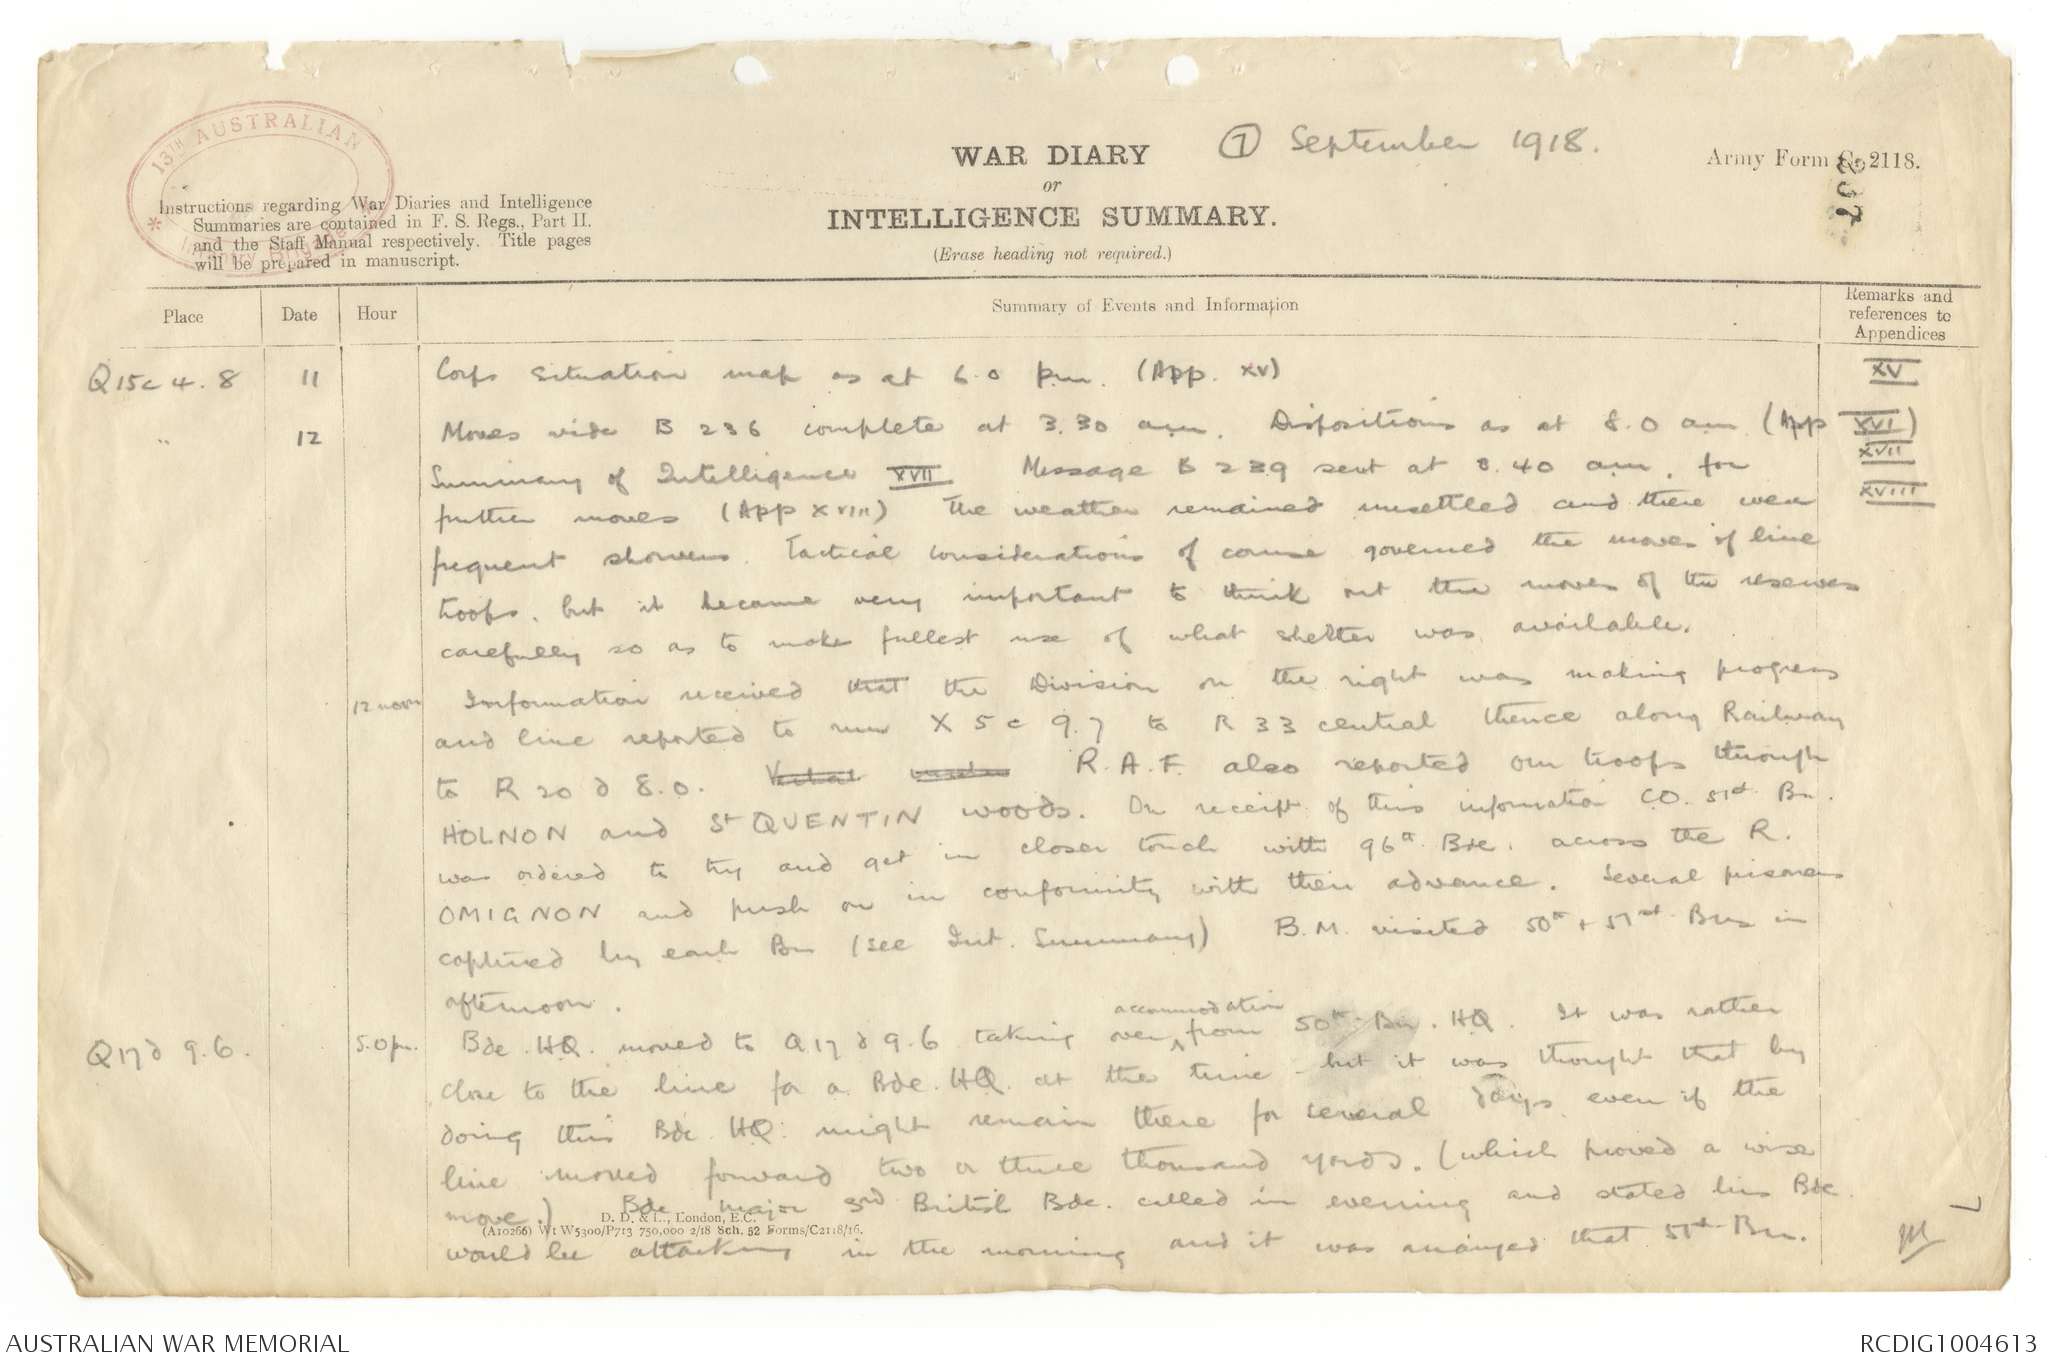 13TH AUSTRALIAN
Infantry Brigade
Instructions regarding War Diaries and Intelligence
Summaries are contained in F. S. Regs., Part II.
and the Staff Manual respectively. Title pages
will be prepared in manuscript.
WAR DIARY
or
INTELLIGENCE SUMMARY.
(Erase heading not required.)
7 September 1918.
Army Form C. 2118.
Place
Date
Hour
Summary of Events and Information
Remarks and
references to
Appendices
Q15c 4.8 11 Corps situation map as at 6.0 pm. (App. XV) XV
" 12 Moves vide B 236 complete at 3.30 am. Dispositions as at 8.0 am (App XVI)
Summary of Intelligence XVII Message B 239 sent at 8.40 am. for XVII
further moves (App XVIII) The weather remained unsettled and there were XVIII
frequent showers. Tactical considerations of course governed the moves of line
troops, but it became very important to think out the moves of the reserves
carefully so as to make fullest use of what shelter was available.
12 noon Information received that the Division on the right was making progress
and line reported to run X 5 c 9.7 to R 33 central thence along Railway
to R 20 d 8.0. Verbal R.A.F. also reported our troops through
HOLNON and St QUENTIN woods. On receipt of this information CO. 51st Bn.
was ordered to try and get in closer touch with 96th Bde. across the R.
OMIGNON and push on in conformity with their advance. Several prisoners
captured by each Bn (see Int. Summary) B.M. visited 50th + 51st Bns in
afternoon.
Q17d 9.6. 5.0pm. Bde. HQ. moved to Q17d 9.6 taking over accommodation from 50th Bn. HQ. It was rather
close to the line for a Bde. HQ. at the time - but it was thought that by
doing this Bde HQ. might remain there for several days even if the
line moved forward two or three thousand yards. (which proved a wise
move.) Bde major 3rd British Bde. called in evening and stated his Bde.
would be attacking in the morning and it was arranged that 51st Bn.
D. D. & L., London, E.C.
(A10266) Wt W5300/P713 750,000 2/18 Sch. 52 Forms/C2118/16.
AUSTRALIAN WAR MEMORIAL
RCDIG1004613